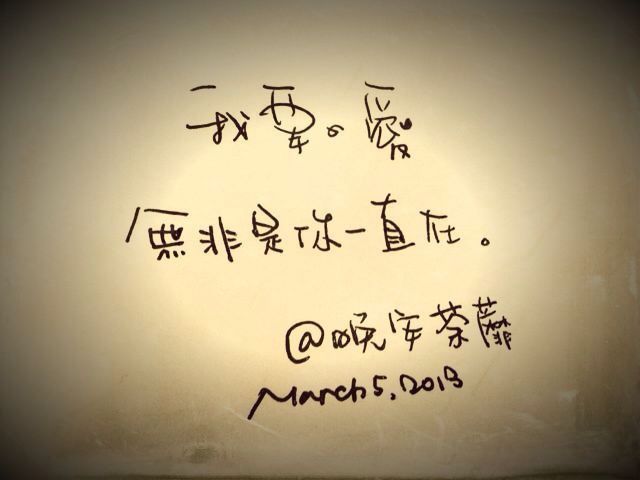 我要。愛
無非是你一直在。
@晚安荼蘼
March 5, 2013